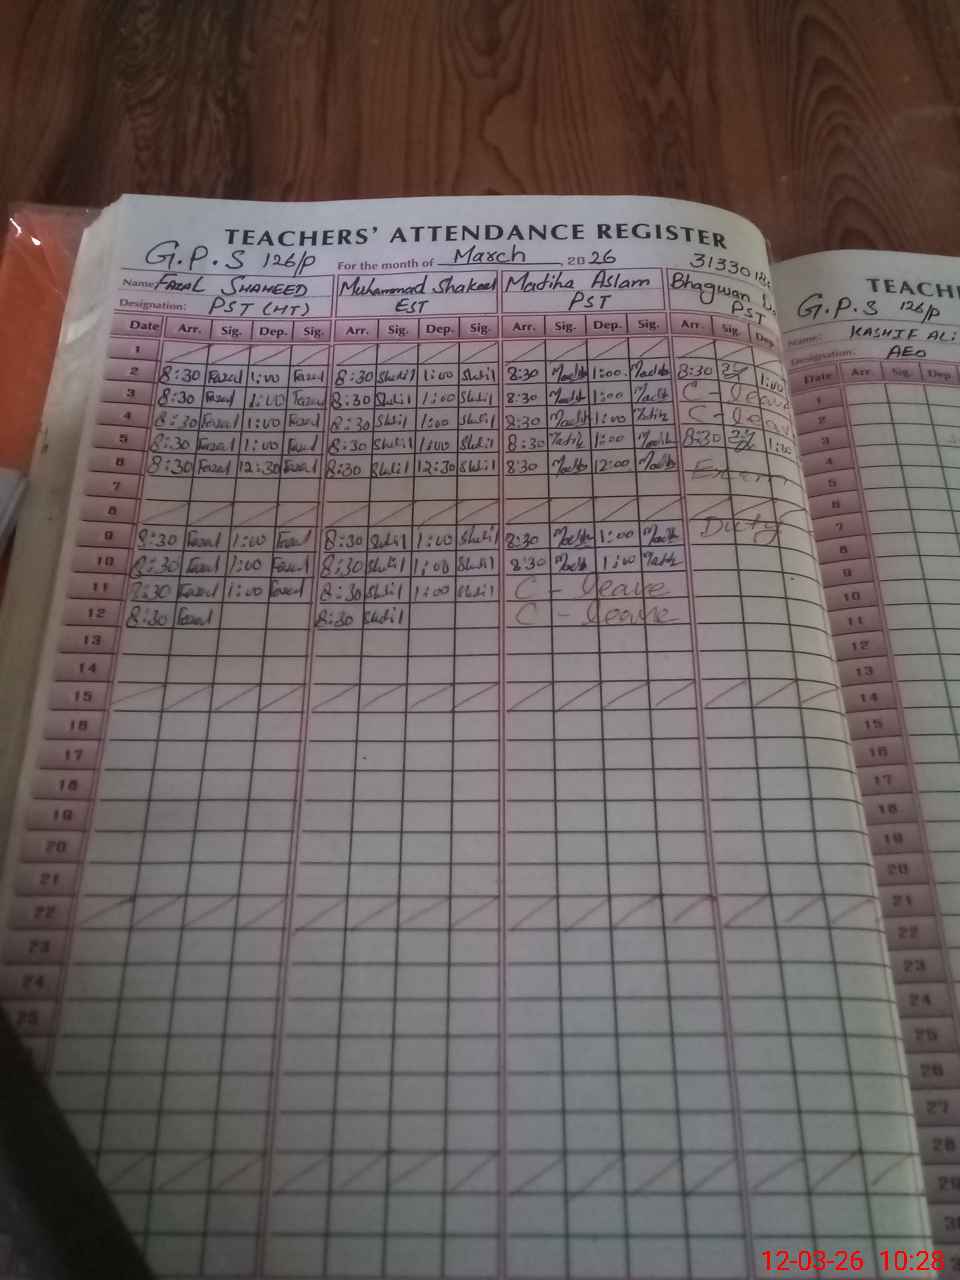 TEACHERS' ATTENDANCE REGISTER
G.P.S 126/P For the month of March, 2026 31330
Name: FAZAL SHAHEED Muhammad Shakeel Madiha Aslam Bhagwan
Designation: PST (HT) EST PST PST
Date Arr. Sig. Dep. Sig. Arr. Sig. Dep. Sig. Arr. Sig. Dep. Sig. Arr. Sig. Dep.
1
2 8:30 Fazal 1:00 Fazal 8:30 Shakil 1:00 Shakil 8:30 Madiha 1:00 Madiha 8:30 1:00
3 8:30 Fazal 1:00 Fazal 8:30 Shakil 1:00 Shakil 8:30 Madiha 1:00 Madiha C - leave
4 8:30 Fazal 1:00 Fazal 8:30 Shakil 1:00 Shakil 8:30 Madiha 1:00 Madiha C - leave
5 8:30 Fazal 1:00 Fazal 8:30 Shakil 1:00 Shakil 8:30 Madiha 1:00 Madiha 8:30 1:00
6 8:30 Fazal 12:30 Fazal 8:30 Shakil 12:30 Shakil 8:30 Madiha 12:00 Madiha Exam
7
8
9 8:30 Fazal 1:00 Fazal 8:30 Shakil 1:00 Shakil 8:30 Madiha 1:00 Madiha Duty
10 8:30 Fazal 1:00 Fazal 8:30 Shakil 1:00 Shakil 8:30 Madiha 1:00 Madiha
11 8:30 Fazal 1:00 Fazal 8:30 Shakil 1:00 Shakil C - leave
12 8:30 Fazal 8:30 Shakil C - leave
13
14
15
16
17
18
19
20
21
22
23
24
25
TEACH
G.P.S 126/P
Name: KASHIF ALI
Designation: AEO
Date Arr. Sig. Dep
1
2
3
4
5
6
7
8
9
10
11
12
13
14
15
16
17
18
19
20
21
22
23
24
25
26
27
28
29
12-03-26 10:28